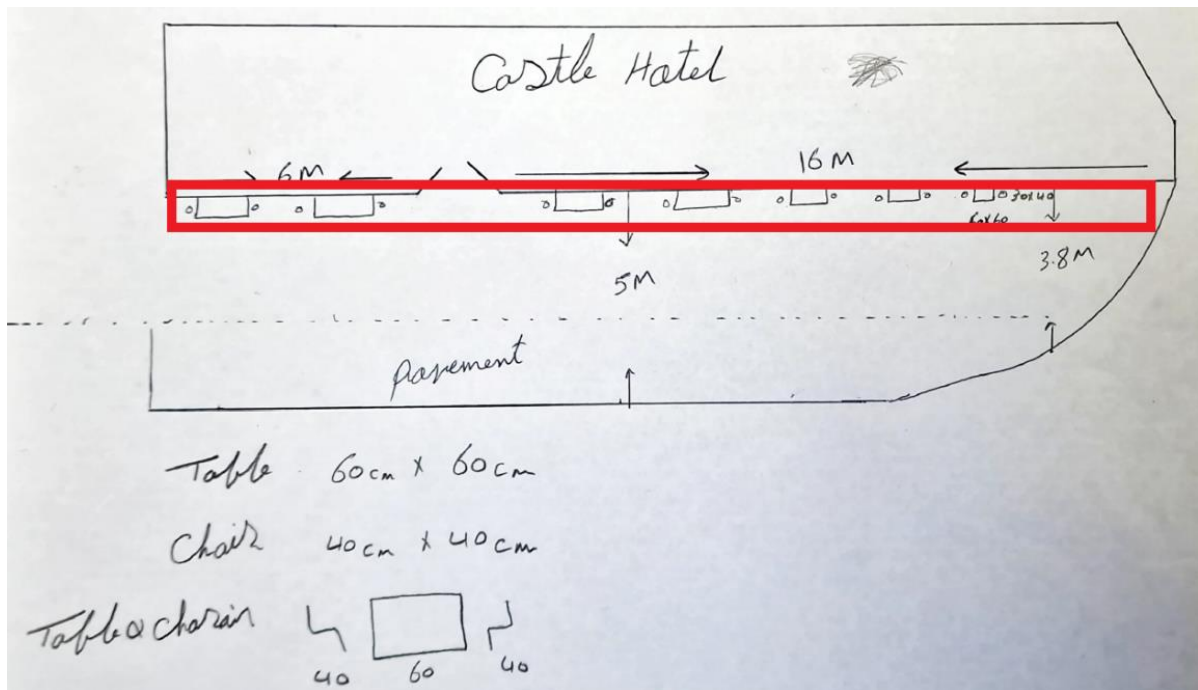 Castle Hotel
6M
16 M
30x40
60x60
5M
3.8M
pavement
Table 60cm x 60cm
Chair 40cm x 40cm
Table & Chair
40 60 40